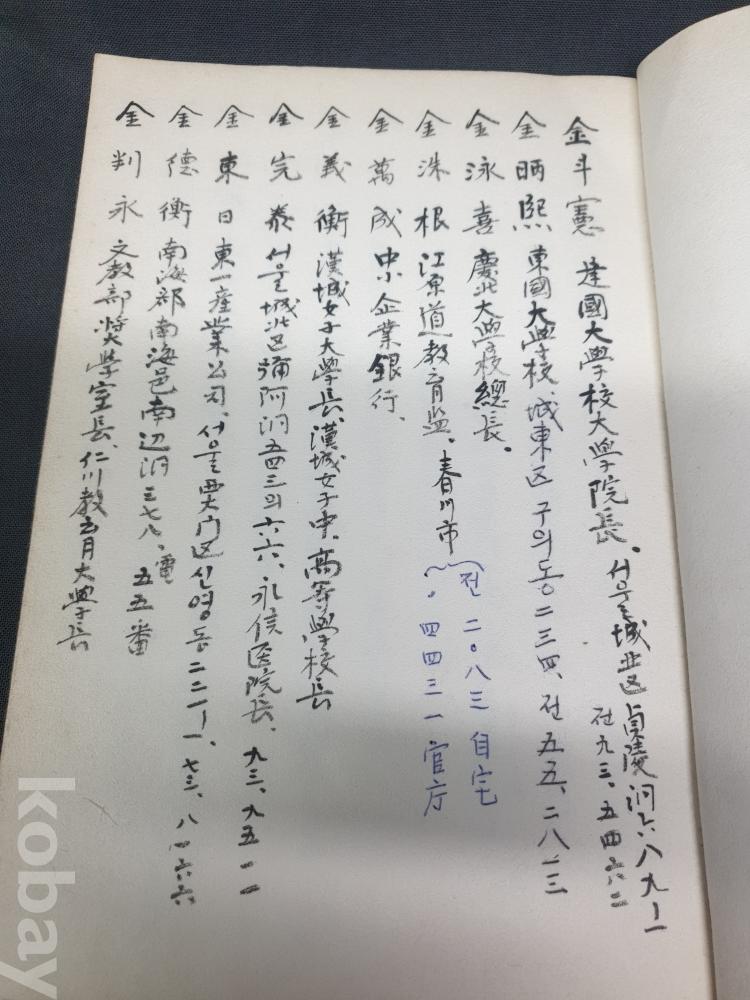 金斗憲 建國大學校大學院長. 서울城北区貞陵洞六八九ノ一
전九三、五四六二
金昞熙 東國大學校、城東区구의동二三四、전五五、二八一三
金泳喜 慶北大學校總長.
金洙根 江原道敎育監. 春川市
(전 二〇八三 自宅
〃 四四三一 官庁
金萬成 中小企業銀行、
金義衡 漢城女子大學長、漢城女子中、高等學校長
金完泰 서울城北区彌阿洞五四三의六六、永信医院長、九三、九五一一
金東日 東一産業公司、서울西大门区신영동二二一ノ一、七三、八一六六
金德衡 南海郡南海邑南辺洞三七八、電 五五番
金判永 文敎部奬學室長、仁川敎育大學長
kobay